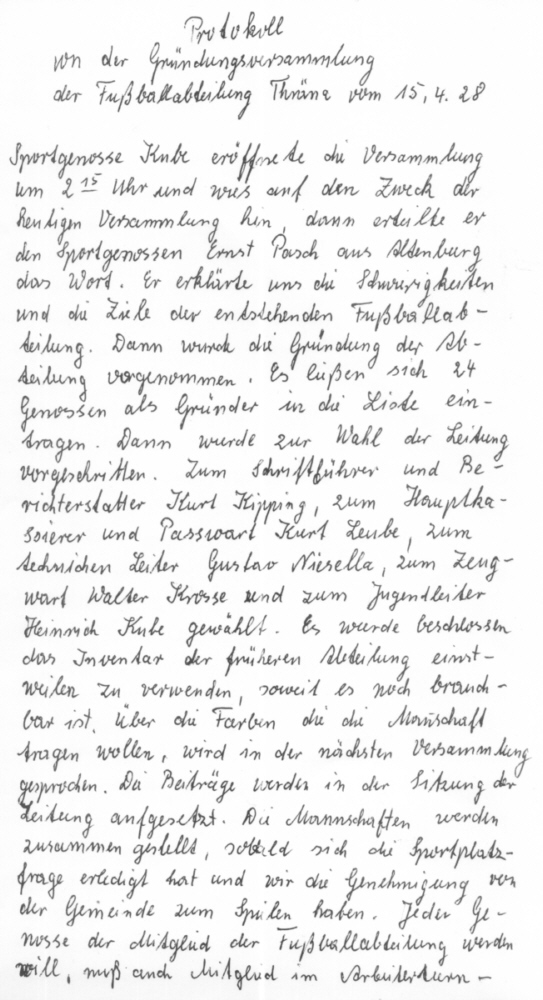 Protokoll
von der Gründungsversammlung
der Fußballabteilung Thräna vom 15.4.28
Sportgenosse Kube eröffnete die Versammlung
um 2 15 Uhr und wies auf den Zweck der
heutigen Versammlung hin, dann erteilte er
den Sportgenossen Ernst Pasch aus Altenburg
das Wort. Er erklärte uns die Schwierigkeiten
und die Ziele der entstehenden Fußballab-
teilung. Dann wurde die Gründung der Ab-
teilung vorgenommen. Es ließen sich 24
Genossen als Gründer in die Liste ein-
tragen. Dann wurde zur Wahl der Leitung
vorgeschritten. Zum Schriftführer und Be-
richterstatter Kurt Kipping, zum Hauptka-
ssierer und Passwart Kurt Leube, zum
technichen Leiter Gustav Niesella, zum Zeug-
wart Walter Krosse und zum Jugendleiter
Heinrich Kube gewählt. Es wurde beschlossen
das Inventar der früheren Abteilung einst-
weilen zu verwenden, soweit es noch brauch-
bar ist. Über die Farben die die Manschaft
tragen wollen, wird in der nächsten Versammlung
gesprochen. Die Beiträge werden in der Sitzung der
Leitung aufgesetzt. Die Mannschaften werden
zusammen gestellt, sobald sich die Sportplatz-
frage erledigt hat und wir die Genehmigung von
der Gemeinde zum Spielen haben. Jeder Ge-
nosse der Mitglied der Fußballabteilung werden
will, muß auch Mitglied im Arbeiterturn-